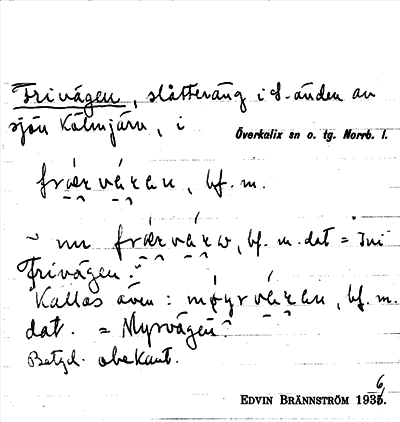 Frivägen, slåtteräng i S. änden av
sjön Kälmjärv, i
Överkalix sn o. tg. Norrb. l.
frær vɛ́ɛ̀an, bf. m.
~ nu frær vɛ́ɛ̀w, bf. m. dat = Ini
Frivägen.
Kallas även: møyr vɛ́ɛ̀an, bf. m.
dat. = Myrvägen.
Betyd. obekant.
EDVIN BRÄNNSTRÖM 1936.